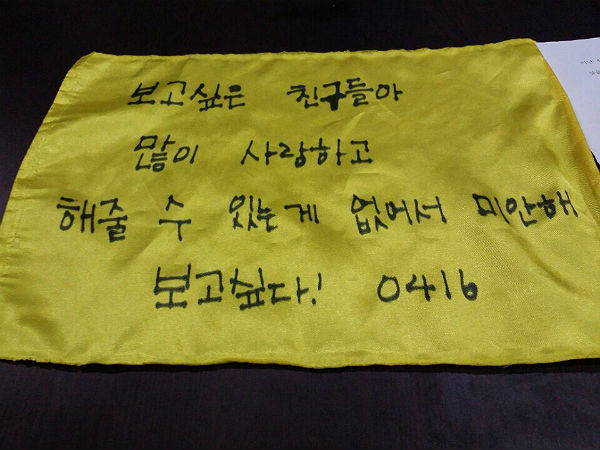 보고싶은 친구들아
많이 사랑하고
해줄 수 있는게 없어서 미안해
보고싶다! 0416